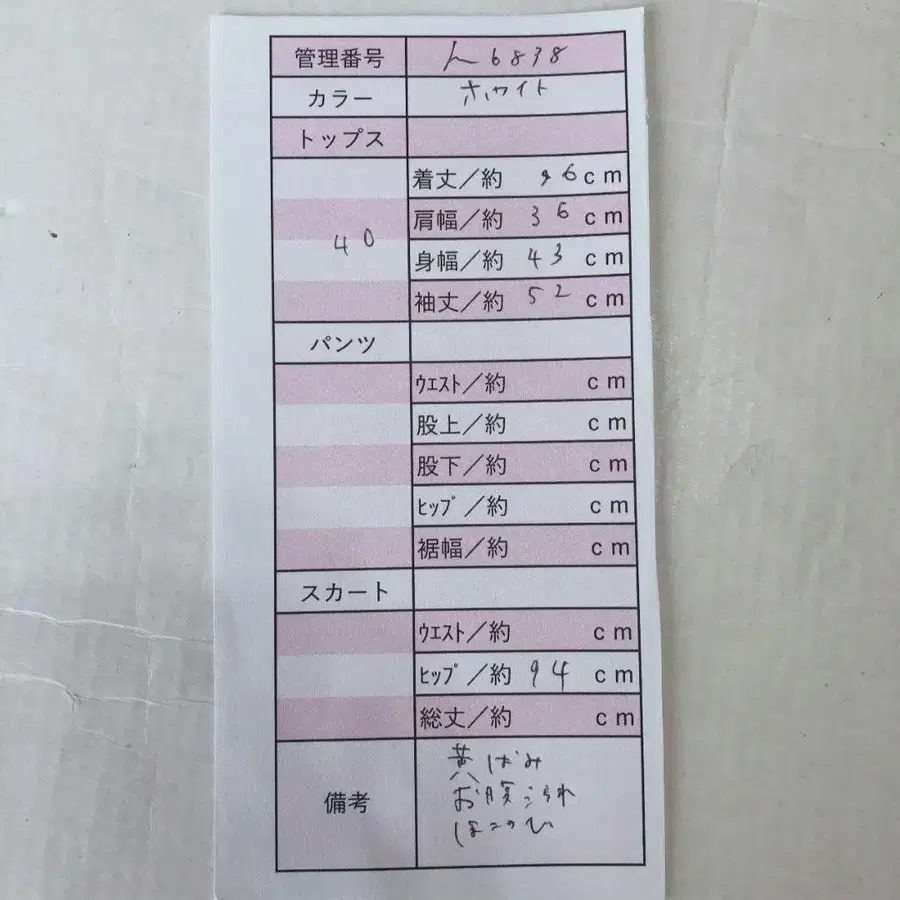 管理番号 h6838
カラー ホワイト
トップス
40
着丈／約 96cm
肩幅／約 36cm
身幅／約 43cm
袖丈／約 52cm
パンツ
ｳｴｽﾄ／約 cm
股上／約 cm
股下／約 cm
ﾋｯﾌﾟ／約 cm
裾幅／約 cm
スカート
ｳｴｽﾄ／約 cm
ﾋｯﾌﾟ／約 94cm
総丈／約 cm
備考
黄ばみ
お腹